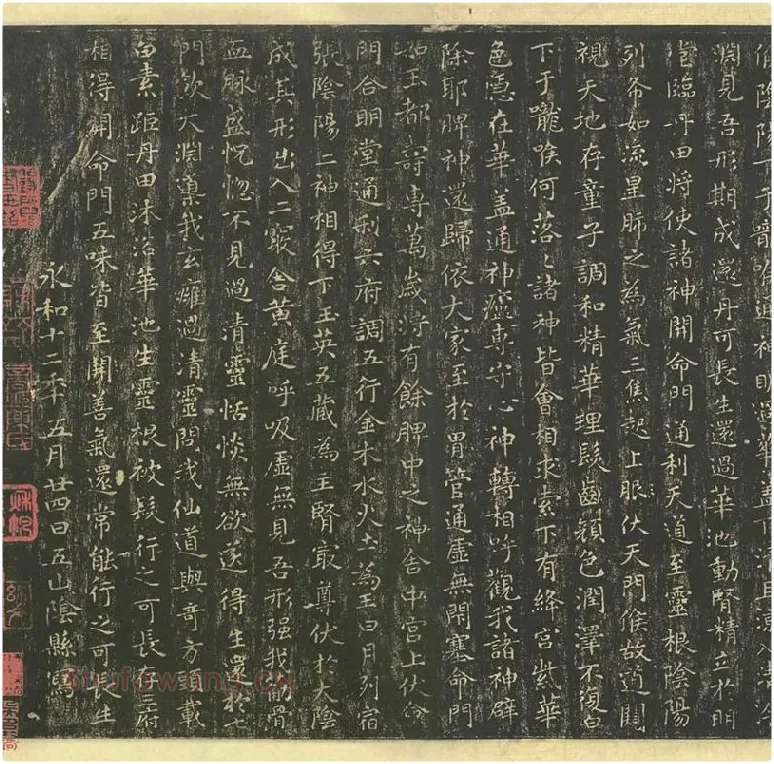 陰陽下于嚨喉通神明過華蓋下清且涼入清冷
淵見吾形期成還丹可長生還過華池動腎精立於明
堂臨丹田將使諸神開命門通利天道至靈根陰陽
列布如流星肺之為氣三焦起上服伏天門候故道闚
視天地存童子調和精華理髮齒顏色潤澤不復白
下于嚨喉何落〻諸神皆會相求索下有絳宮紫華
色隱在華蓋通神廬專守心神轉相呼觀我諸神辟
除耶脾神還歸依大家至於胃管通虛無閇塞命門
如玉都壽專萬歲將有餘脾中之神舍中宮上伏命
門合明堂通利六府調五行金木水火土為王日月列宿
張陰陽二神相得下玉英五藏為主腎最尊伏於大陰
成其形出入二竅舍黃庭呼吸虛無見吾形强我筋骨
血脉盛怳惚不見過清靈恬惔無欲遂得生還於七
門飲大淵導我玄癰過清靈問我仙道與奇方頭載
白素距丹田沐浴華池生靈根被髮行之可長存三府
相得開命門五味皆至開善氣還常能行之可長生
永和十二年五月廿四日五山陰縣寫
shufawang.cn